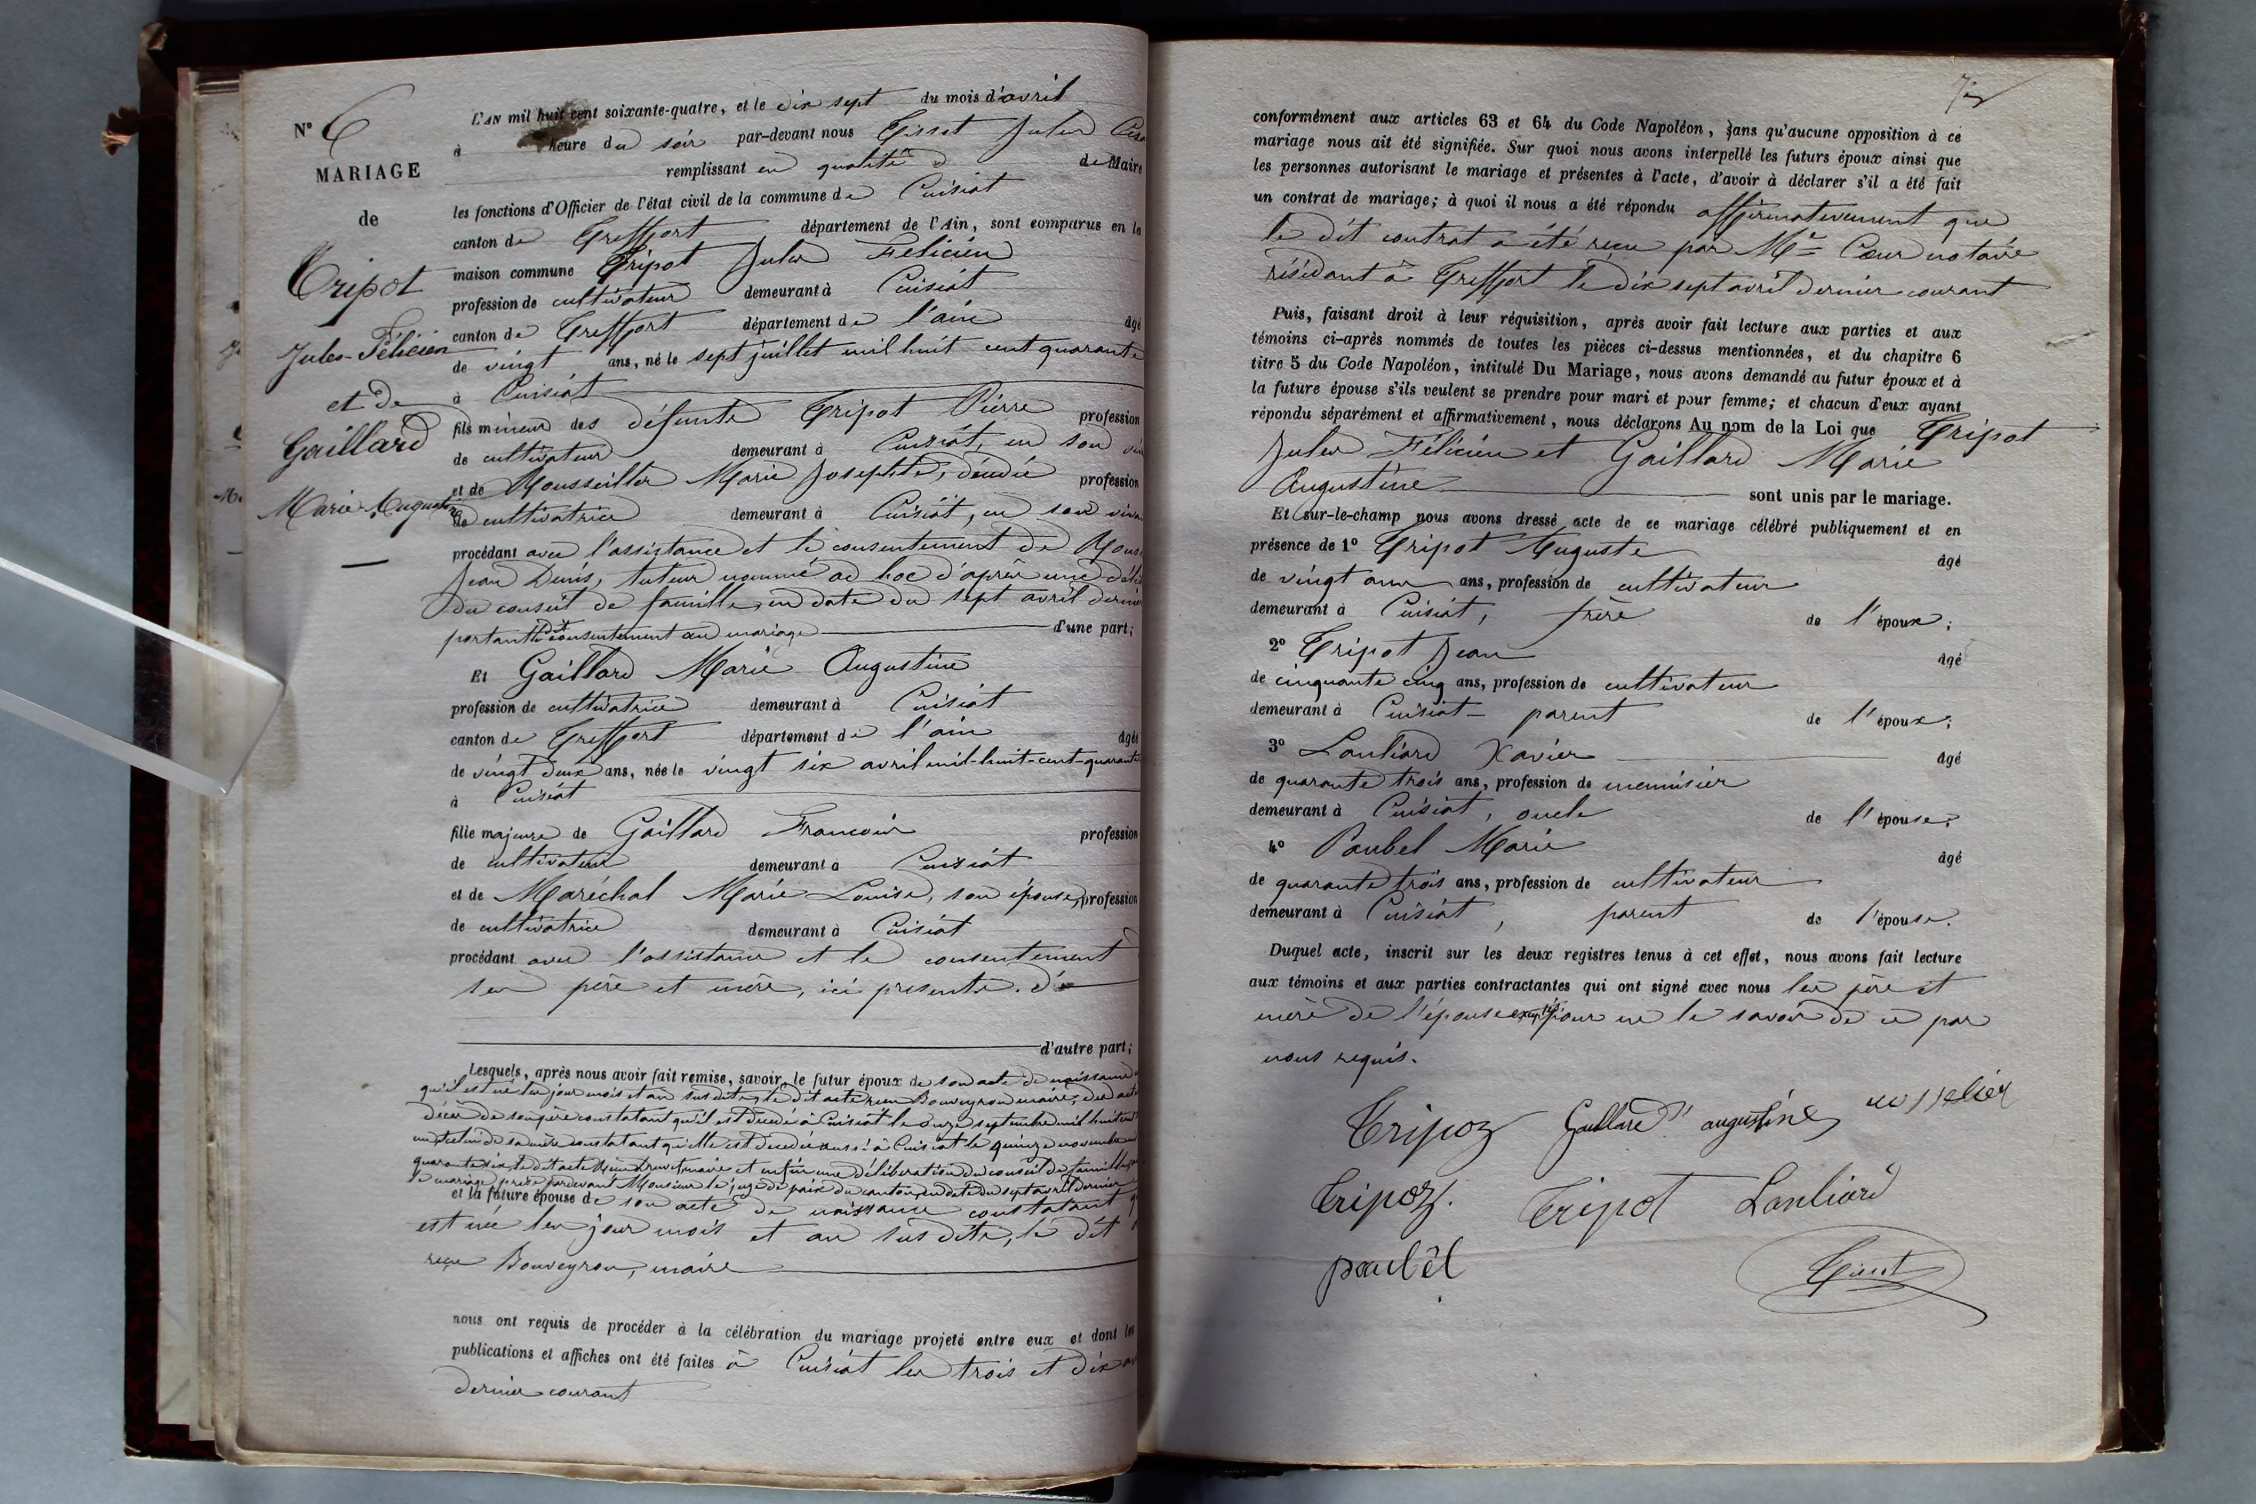 N° 6
MARIAGE
de
Tripot
Jules-Félicien
et de
Gaillard
Marie Augustine
L'AN mil huit cent soixante-quatre, et le dix sept du mois d'avril
à heure du soir par-devant nous Jules
remplissant en qualité de Maire
les fonctions d'Officier de l'état civil de la commune de Cuisiat
canton de Treffort département de l'Ain, sont comparus en la
maison commune Tripot Jules Félicien
profession de cultivateur demeurant à Cuisiat
canton de Treffort département de l'ain âgé
de vingt ans, né le sept juillet mil huit cent quarante
à Cuisiat
fils mineur des défunts Tripot Pierre profession
de cultivateur demeurant à Cuisiat, en son
et de Mousseiller Marie Josephte, décédée profession
de cultivatrice demeurant à Cuisiat, en son
procédant avec l'assistance et le consentement de
Jean Denis, tuteur nommé ad hoc d'après une
du conseil de famille, en date du sept avril dernier
portant le dit consentement au mariage d'une part;
Et Gaillard Marie Augustine
profession de cultivatrice demeurant à Cuisiat
canton de Treffort département de l'ain âgée
de vingt deux ans, née le vingt six avril mil-huit-cent-quarante
à Cuisiat
fille majeure de Gaillard Francois profession
de cultivateur demeurant à Cuisiat
et de Maréchal Marie Louise, son épouse, profession
de cultivatrice demeurant à Cuisiat
procédant avec l'assistance et le consentement
ses père et mère, ici présents. d'
d'autre part;
Lesquels, après nous avoir fait remise, savoir, le futur époux de son acte de naissance
qu'il est né les jour mois et an susdits, le dit acte reçu Bouveyron maire, des actes
décès de son père constatant qu'il est décédé à Cuisiat le onze septembre mil huit cent
celui de sa mère constatant qu'elle est décédée aussi à Cuisiat le quinze novembre
quarante six, le dit acte reçu maire et enfin une délibération du conseil de famille
le mariage prise pardevant Monsieur le juge de paix du canton, en date du sept avril dernier
et la future épouse de son acte de naissance constatant
est née les jour mois et an sus dits, le dit
reçu Bouveyron, maire
nous ont requis de procéder à la célébration du mariage projeté entre eux et dont les
publications et affiches ont été faites à Cuisiat les trois et dix
dernier courant
conformément aux articles 63 et 64 du Code Napoléon, sans qu'aucune opposition à ce
mariage nous ait été signifiée. Sur quoi nous avons interpellé les futurs époux ainsi que
les personnes autorisant le mariage et présentes à l'acte, d'avoir à déclarer s'il a été fait
un contrat de mariage; à quoi il nous a été répondu affirmativement que
le dit contrat a été reçu par Me Cœur notaire
résidant à Treffort le dix sept avril dernier courant
Puis, faisant droit à leur réquisition, après avoir fait lecture aux parties et aux
témoins ci-après nommés de toutes les pièces ci-dessus mentionnées, et du chapitre 6
titre 5 du Code Napoléon, intitulé Du Mariage, nous avons demandé au futur époux et à
la future épouse s'ils veulent se prendre pour mari et pour femme; et chacun d'eux ayant
répondu séparément et affirmativement, nous déclarons Au nom de la Loi que Tripot
Jules Félicien et Gaillard Marie
Augustine sont unis par le mariage.
Et sur-le-champ nous avons dressé acte de ce mariage célébré publiquement et en
présence de 1° Tripot Auguste âgé
de vingt ans, profession de cultivateur
demeurant à Cuisiat, frère de l'époux;
2° Tripot Jean âgé
de cinquante cinq ans, profession de cultivateur
demeurant à Cuisiat parent de l'époux;
3° Lanliard Xavier âgé
de quarante trois ans, profession de menuisier
demeurant à Cuisiat, oncle de l'épouse;
4° Paubel Marie âgé
de quarante trois ans, profession de cultivateur
demeurant à Cuisiat, parent de l'épouse.
Duquel acte, inscrit sur les deux registres tenus à cet effet, nous avons fait lecture
aux témoins et aux parties contractantes qui ont signé avec nous les père et
mère de l'épouse exceptés pour ne le savoir de ce par
nous requis.
Tripoz Gaillard augustine
Tripoz. Tripot Lanliard
paubel